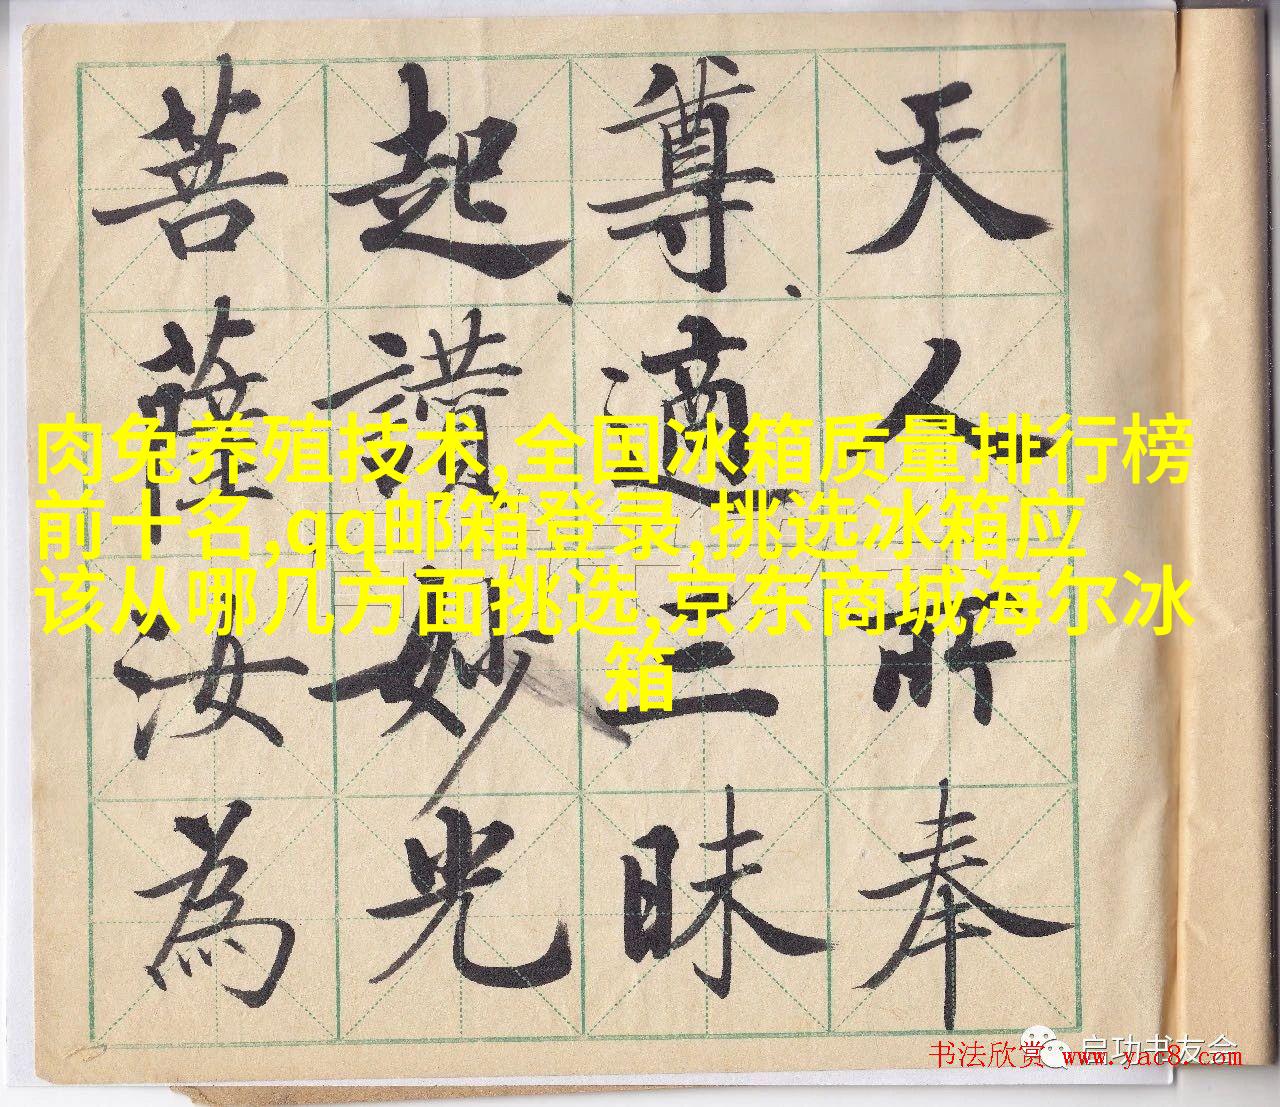 天人所奉
尊適三昧
起讃妙光
菩薩汝為
肉兔养殖技术,全国冰箱质量排行榜
前十名,qq邮箱登录,挑选冰箱应
该从哪几方面挑选,京东商城海尔冰
箱
启功书友会
书法欣赏 www.yac8.com